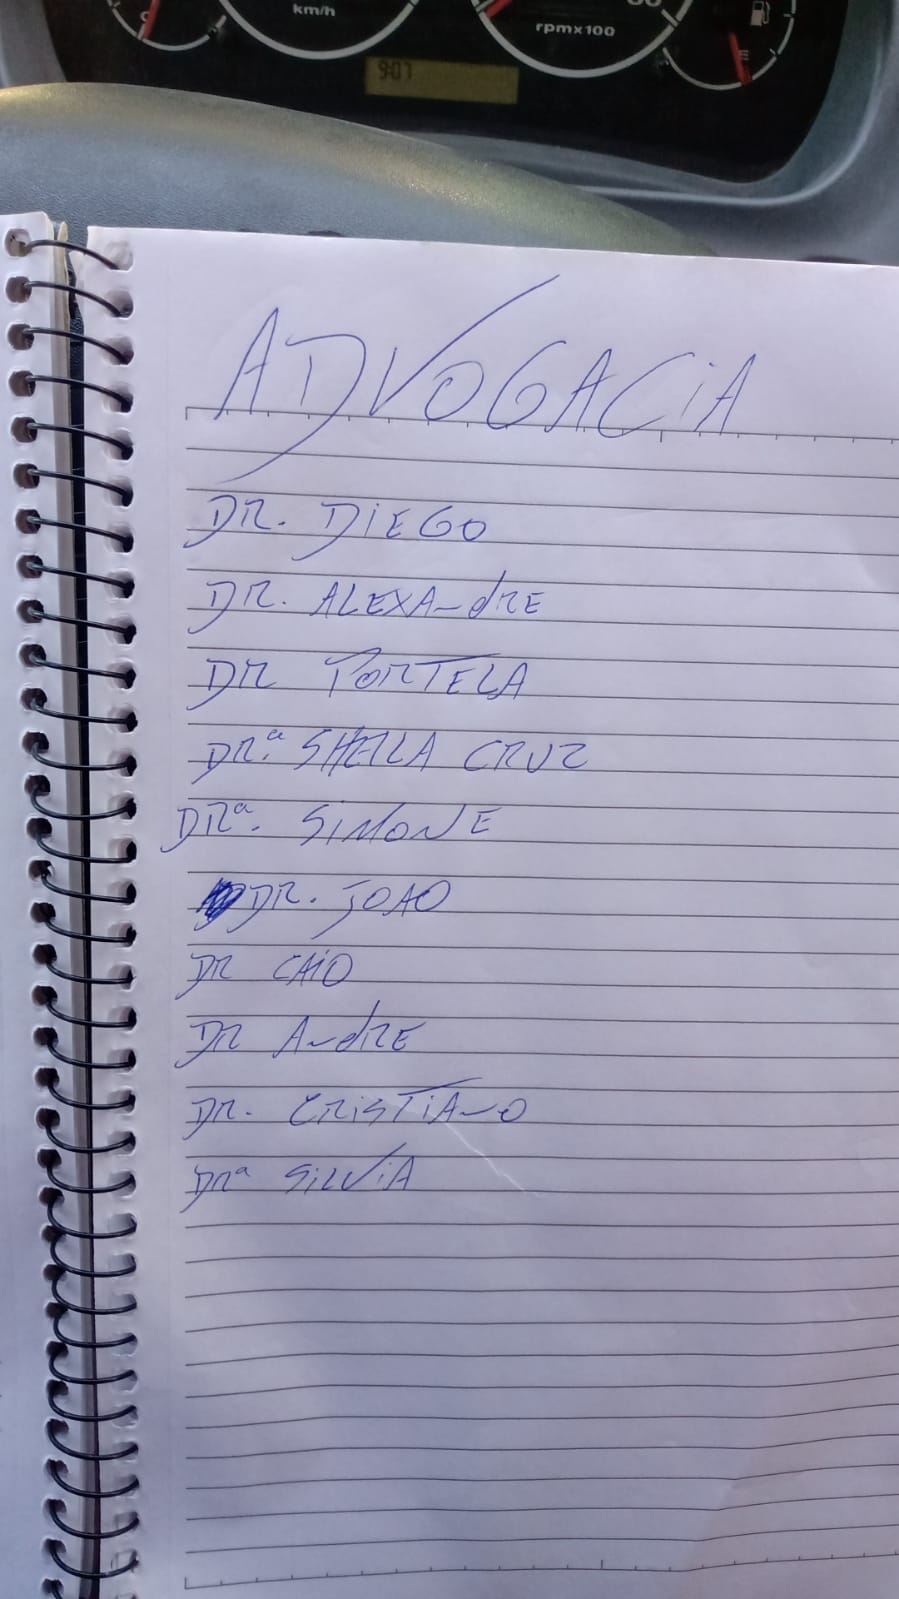 km/h
rpmx100
9:07
ADVOGACIA
DR. DIEGO
DR. ALEXANdRE
DR PORTELA
DRª. SHEILA CRUZ
DRª. SIMONE
DR. JOAO
DR CAIO
DR ANdRE
DR. CRISTIANO
DRª SILVIA